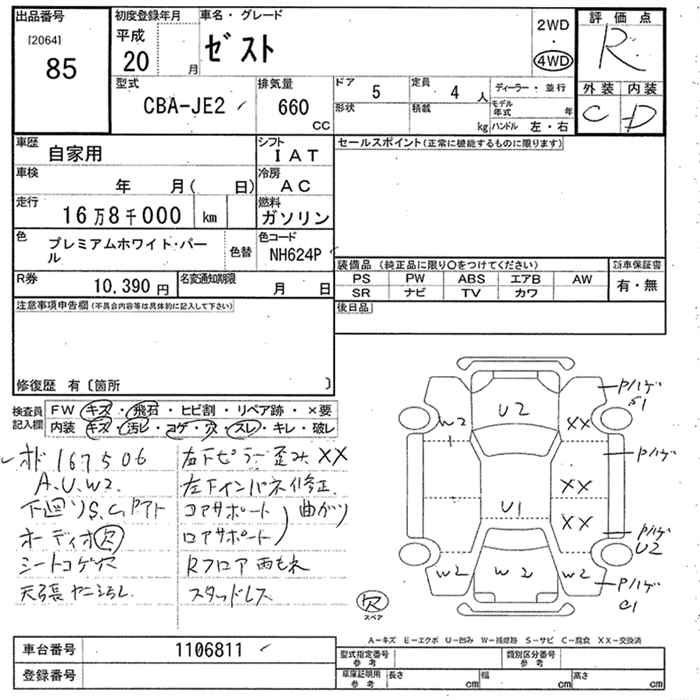 出品番号
[2064]
85
初度登録年月
平成
20
月
車名・グレード
ゼスト
2WD
・
4WD
評価点
R
外装
内装
C
D
型式
CBA-JE2
排気量
660
CC
ドア
5
定員
4
人
ディーラー・並行
形状
積載
kg
モデル年式
年
ハンドル 左・右
車歴
自家用
シフト
IAT
セールスポイント(正常に機能するものに限ります)
車検
年 月( 日)
冷房
AC
走行
16万8千000
km
燃料
ガソリン
色
プレミアムホワイト・パー
ル
色替
色コード
NH624P
R券
10,390 円
名変通知期限
月 日
装備品 (純正品に限り○をつけてください)
新車保証書
PS PW ABS エアB AW
SR ナビ TV カワ
有・無
注意事項申告欄(不具合内容等は具体的に記入して下さい)
後日品
修復歴 有〔箇所 〕
検査員
記入欄
FW キズ・飛石・ヒビ割・リペア跡・×要
内装 キズ・汚レ・コゲ・穴・スレ・キレ・破レ
オド 167506
A.U.W2.
下廻りS.C.Pアト
オーディオ欠
シートコゲ穴
天張ヤニヨゴレ
右下ピラー歪み XX
左下インパネ修正
コアサポート
曲がり
ロアサポート
Rフロア雨もれ
スタッドレス
U2
W2
1
XX
Pハゲ
S1
Pハゲ
XX
U1
XX
Pハゲ
U2
W2
W2
W2
Pハゲ
C1
欠
スペア
A-キズ E-エクボ U-凹み W-補修跡 S-サビ C-腐食 XX-交換済
車台番号
1106811
登録番号
型式指定番号
参考
類別区分番号
参考
車庫証明用
参考
長さ
cm
幅
cm
高さ
cm